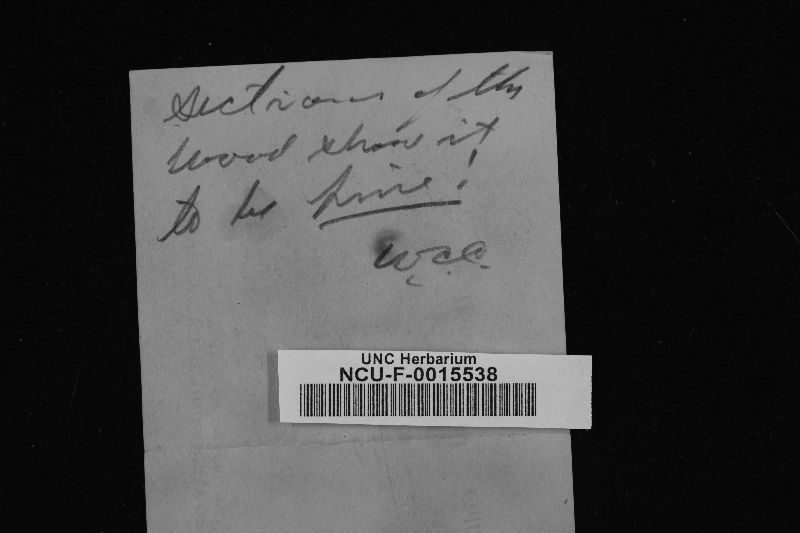 Sections of the
wood show it
to be pine!
W.C.C.
UNC Herbarium
NCU-F-0015538